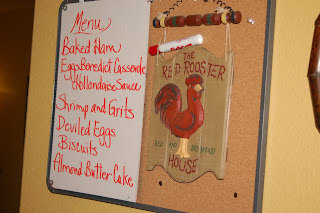 Menu
Baked Ham
Eggs Benedict Casserole
Hollandaise Sauce
Shrimp and Grits
Deviled Eggs
Biscuits
Almond Butter Cake
THE
RED ROOSTER
BED AND BREAKFAST
HOUSE